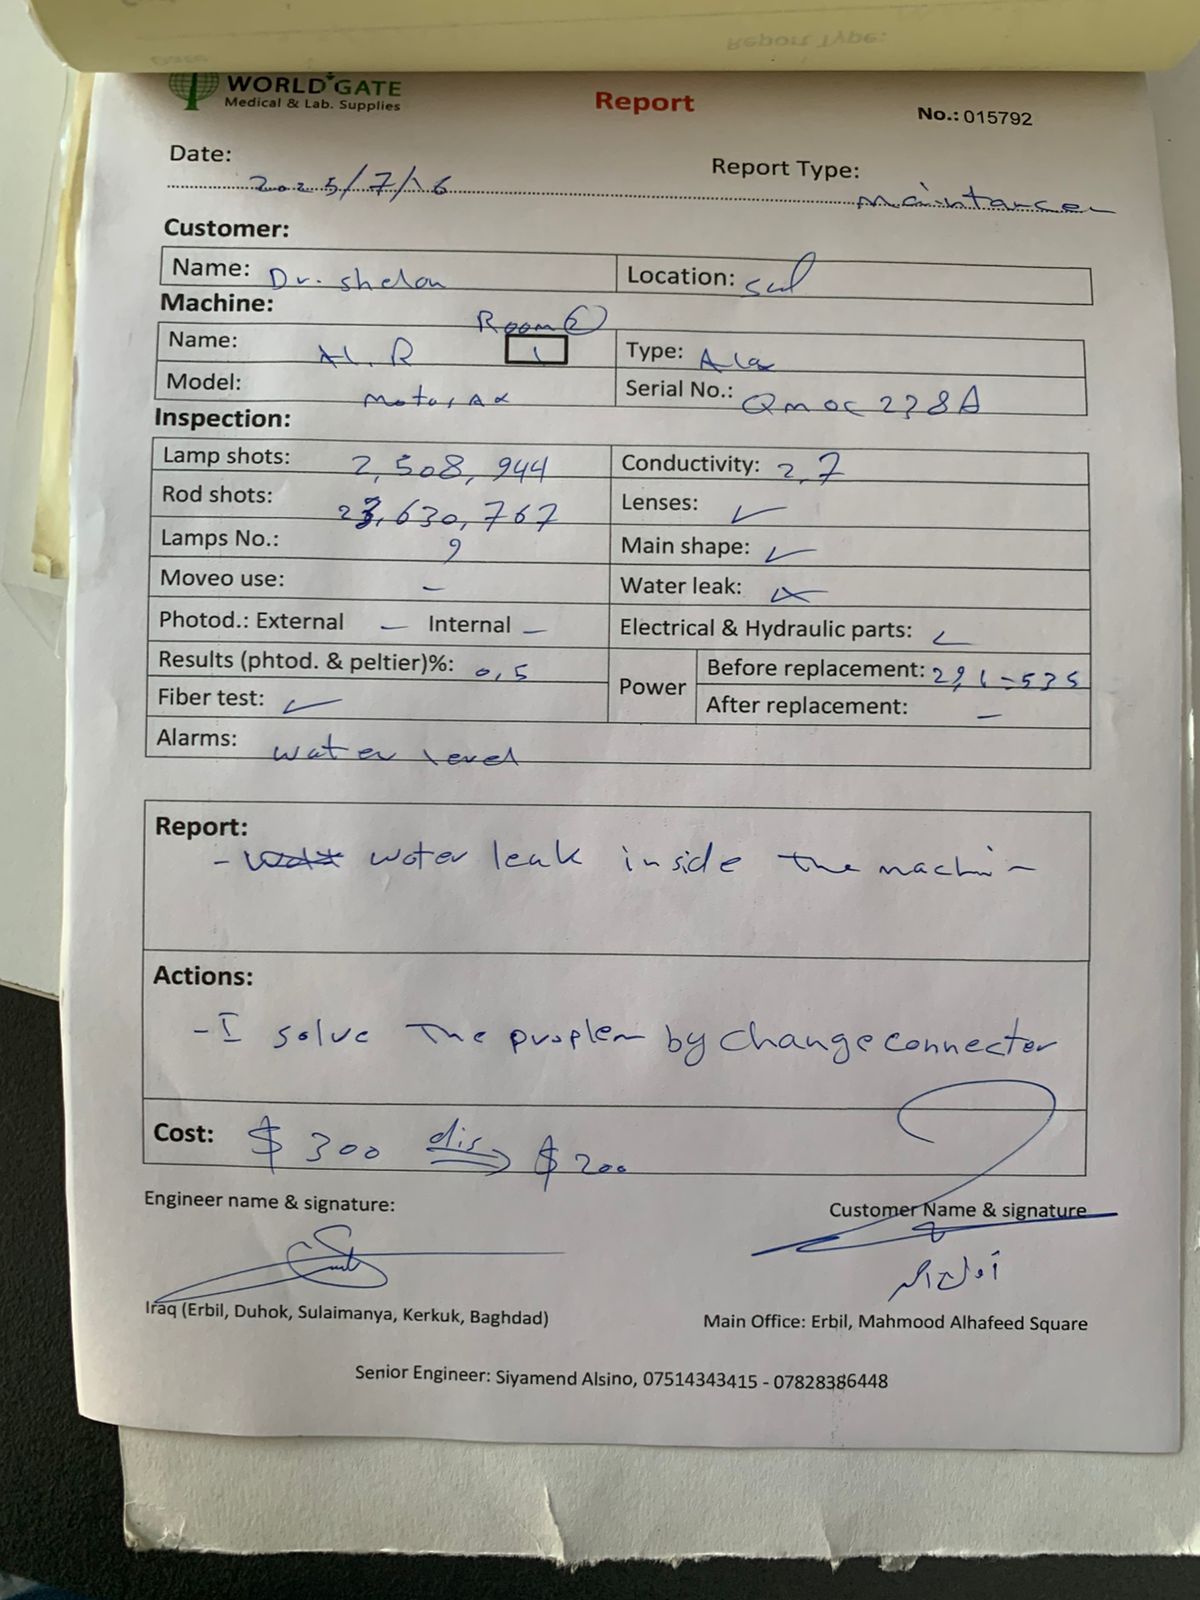 WORLD GATE
Medical & Lab. Supplies
Report
No.: 015792
Date: 2025/7/16
Report Type: maintancen
Customer:
Name: Dr. shelan
Location: sul
Machine:
Room 2
Name: R 1
Type: Alex
Model: Moto, Ax
Serial No.:
Inspection:
Lamp shots: 2,508,944
Conductivity: 2,7
Rod shots: 23,630,767
Lenses: ✓
Lamps No.: 9
Main shape: ✓
Moveo use: -
Water leak: ×
Photod.: External - Internal -
Electrical & Hydraulic parts: ✓
Results (phtod. & peltier)%: 0,5
Power
Before replacement: 535
Fiber test: ✓
After replacement: -
Alarms: water level
Report:
- water leak inside the machin
Actions:
- I solve The proplem by change connector
Cost: $ 300 dis $ 200
Engineer name & signature:
Customer Name & signature
Iraq (Erbil, Duhok, Sulaimanya, Kerkuk, Baghdad)
Main Office: Erbil, Mahmood Alhafeed Square
Senior Engineer: Siyamend Alsino, 07514343415 - 07828386448